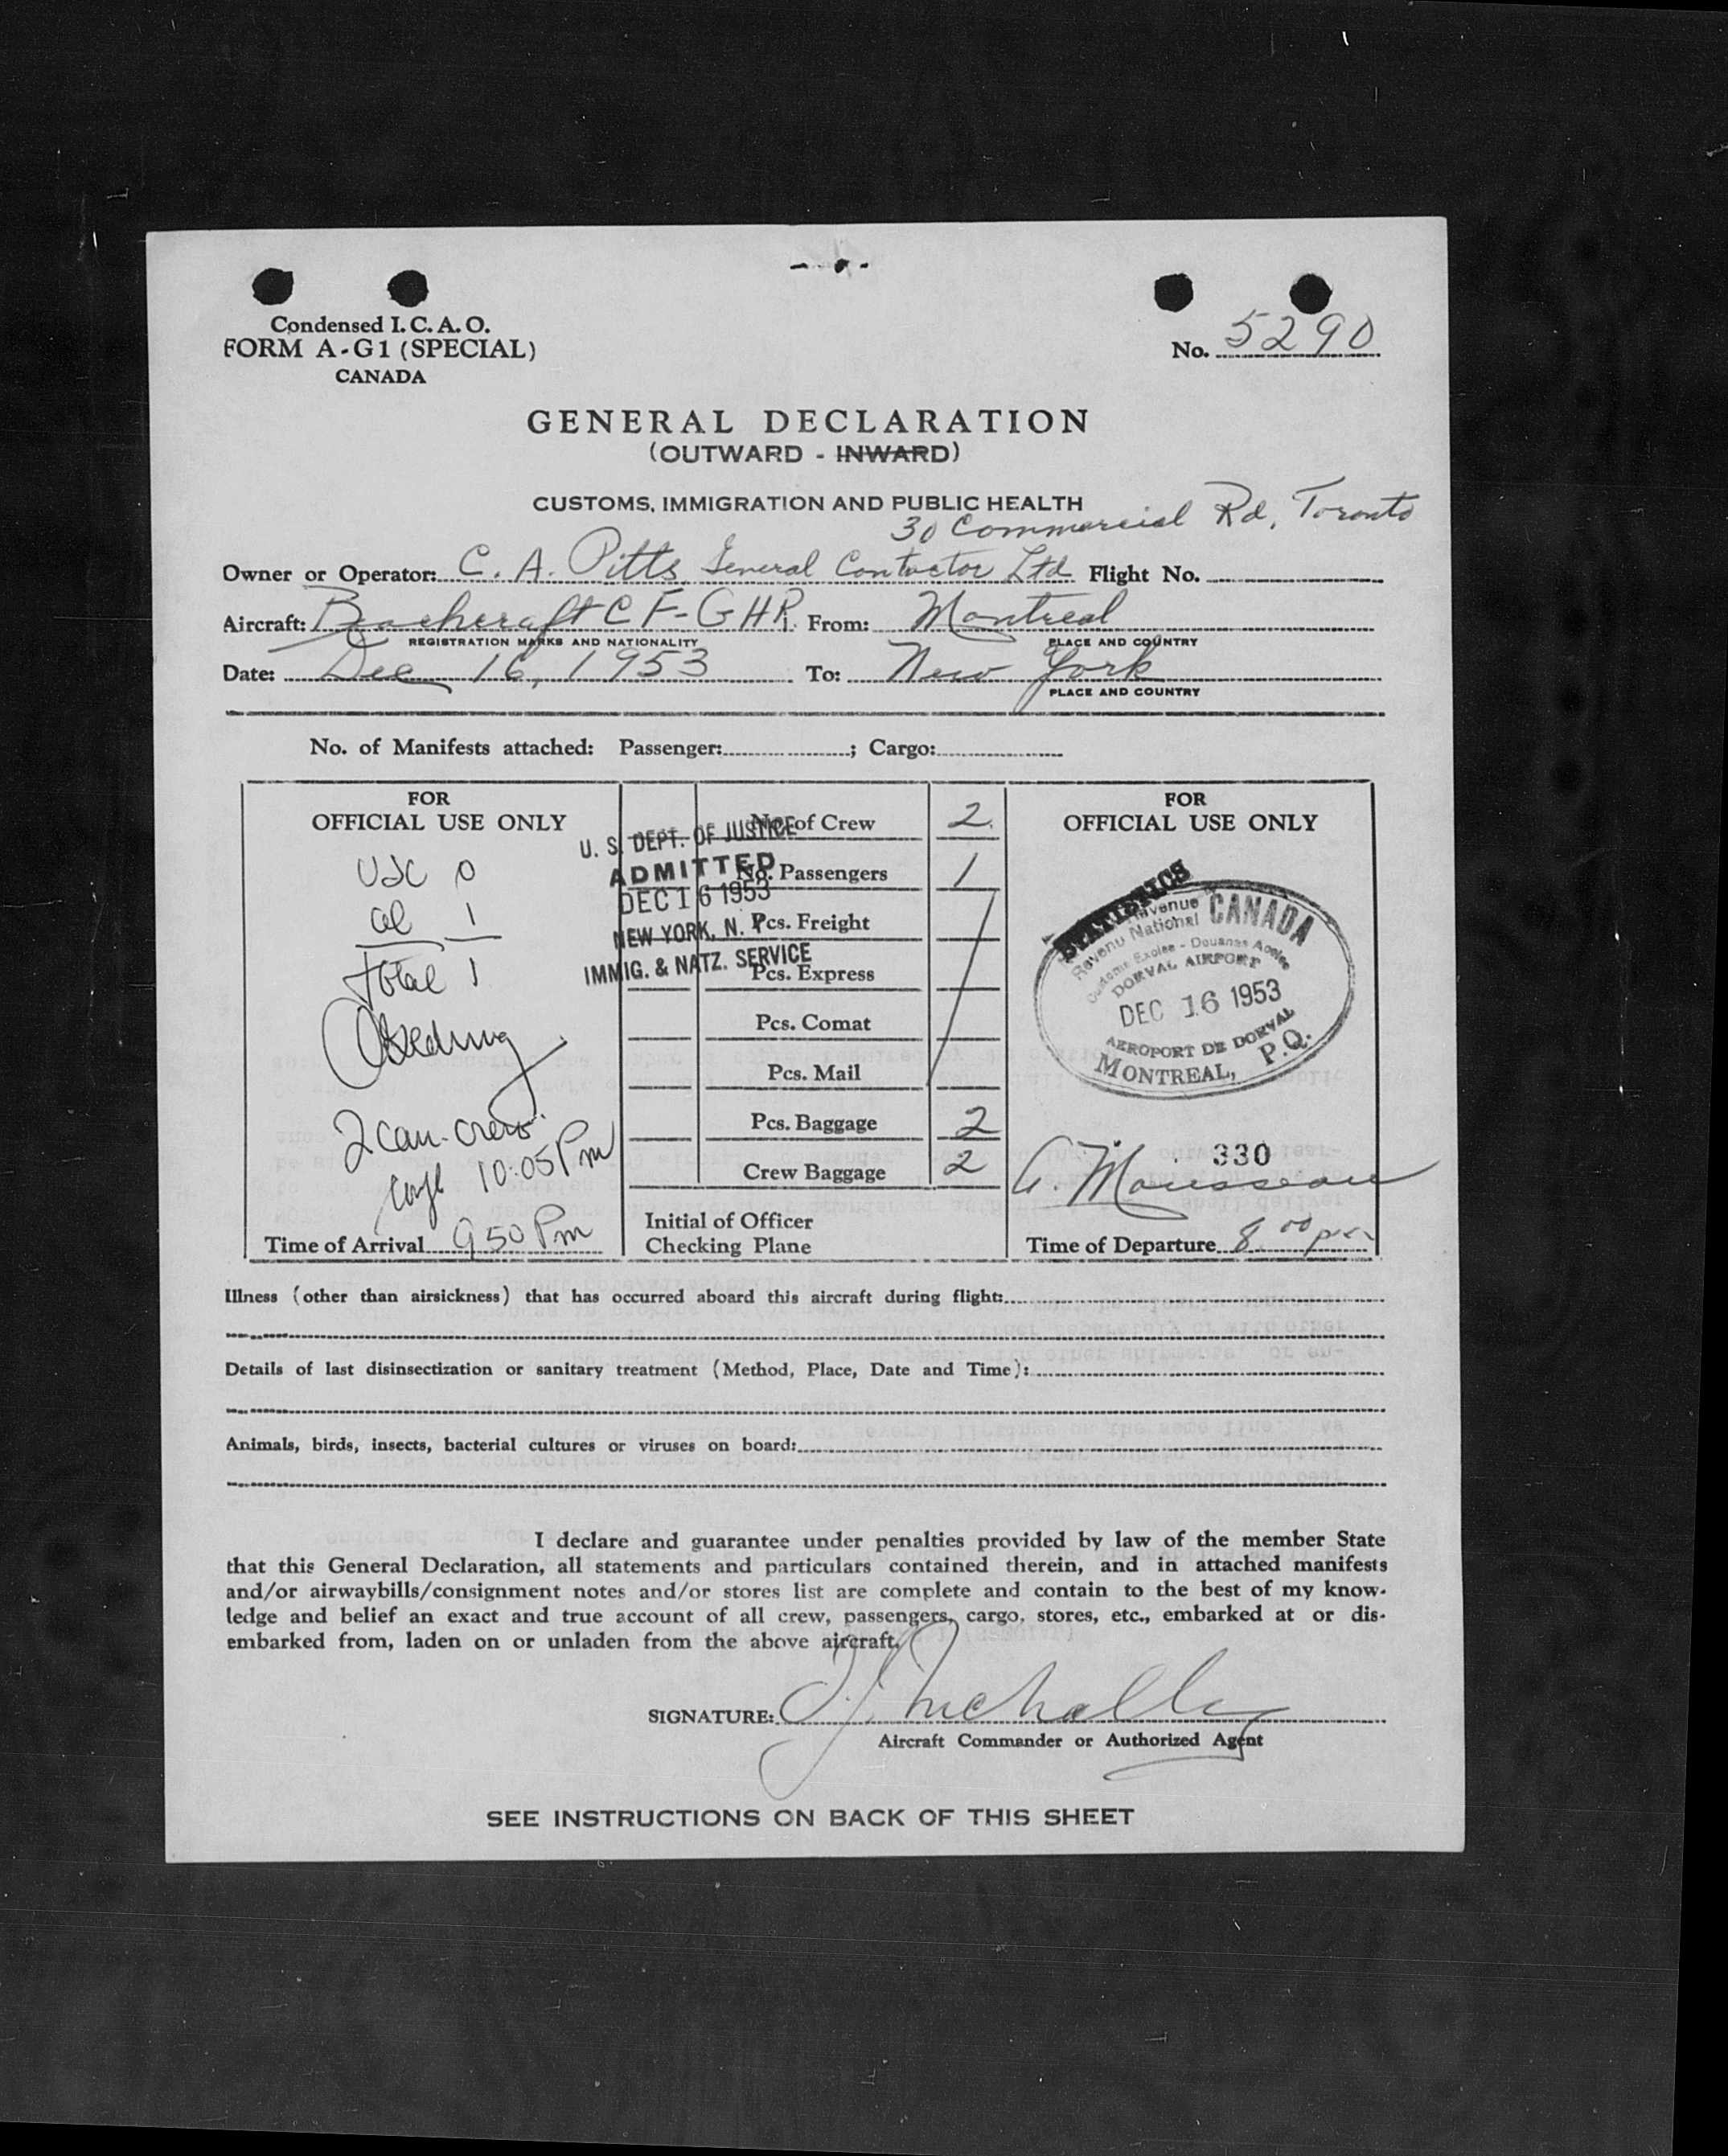 Condensed I. C. A. O.
FORM A-G1 (SPECIAL)
CANADA
No. 5290
GENERAL DECLARATION
(OUTWARD - INWARD)
CUSTOMS, IMMIGRATION AND PUBLIC HEALTH
30 Commercial Rd, Toronto
Owner or Operator: C. A. Pitts General Contractor Ltd Flight No.
Aircraft: Beechcraft CF-GHR From: Montreal
REGISTRATION MARKS AND NATIONALITY PLACE AND COUNTRY
Date: Dec 16, 1953 To: New York
PLACE AND COUNTRY
No. of Manifests attached: Passenger: ; Cargo:
FOR
OFFICIAL USE ONLY
USC 0
al 1
Total 1
2 can. crew
10:05 Pm
Time of Arrival 950 Pm
U. S. DEPT. OF JUSTICE
ADMITTED
DEC 16 1953
NEW YORK, N. Y.
IMMIG. & NATZ. SERVICE
No. of Crew 2
No. Passengers 1
Pcs. Freight
Pcs. Express
Pcs. Comat
Pcs. Mail
Pcs. Baggage 2
Crew Baggage 2
Initial of Officer
Checking Plane
FOR
OFFICIAL USE ONLY
STATISTICS
Revenue CANADA
Revenu National
Customs Excise - Douanes Accise
DORVAL AIRPORT
DEC 16 1953
AEROPORT DE DORVAL
MONTREAL, P.Q.
330
A. Mousseau
Time of Departure 8.00 pm
Illness (other than airsickness) that has occurred aboard this aircraft during flight:
Details of last disinsectization or sanitary treatment (Method, Place, Date and Time):
Animals, birds, insects, bacterial cultures or viruses on board:
I declare and guarantee under penalties provided by law of the member State
that this General Declaration, all statements and particulars contained therein, and in attached manifests
and/or airwaybills/consignment notes and/or stores list are complete and contain to the best of my know-
ledge and belief an exact and true account of all crew, passengers, cargo, stores, etc., embarked at or dis-
embarked from, laden on or unladen from the above aircraft.
SIGNATURE:
Aircraft Commander or Authorized Agent
SEE INSTRUCTIONS ON BACK OF THIS SHEET